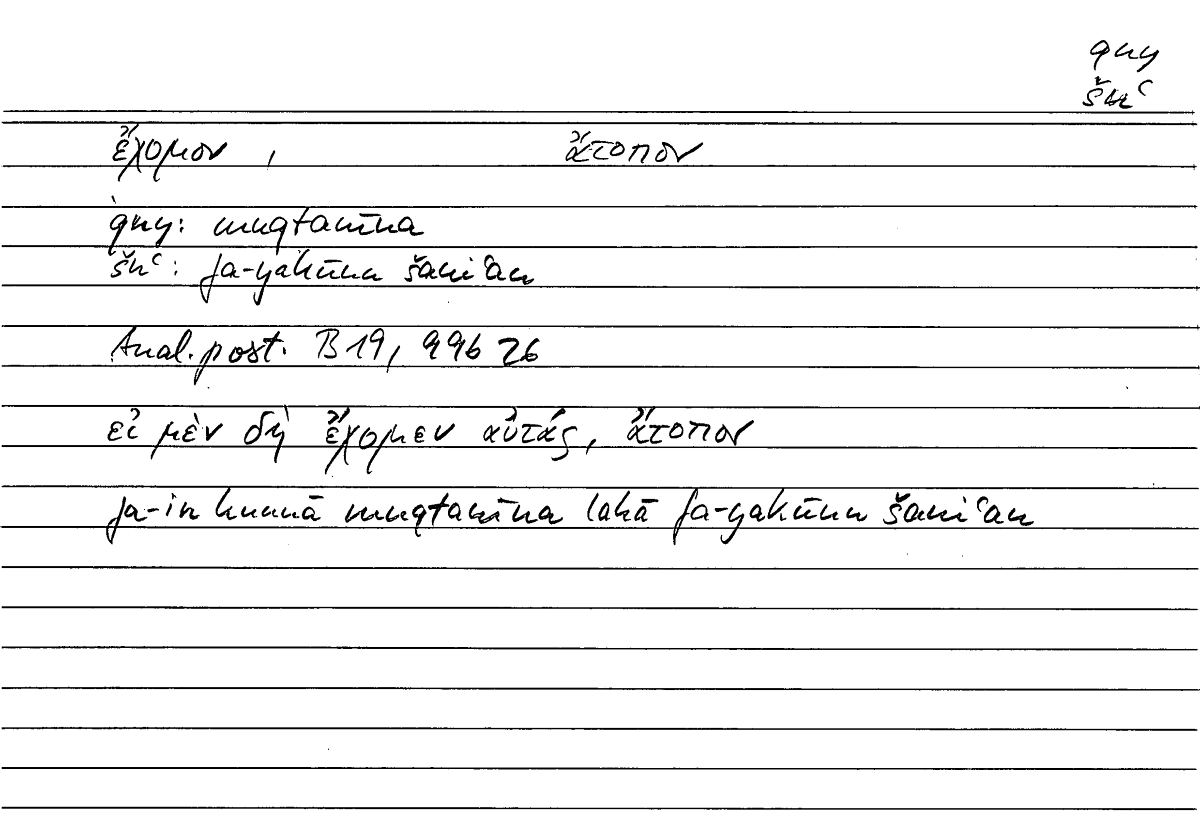 qny
šnʿ
ἔχομον , ἄτοπον
qny: muqtanīna
šnʿ: fa-yakūnu šaniʿan
Anal. post. B 19, 99b 26
εἰ μὲν δὴ ἔχομεν αὐτάς, ἄτοπον
fa-in kunnā muqtanīna lahā fa-yakūnu šaniʿan